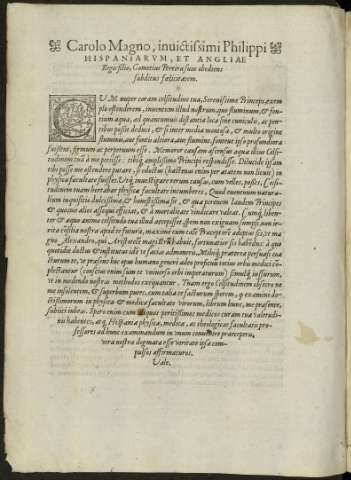 Carolo Magno, inuictissimi Philippi
HISPANIARVM, ET ANGLIAE
Regis filio, Gometius Pereira suus obediens
subditus fœlicitatem.
CVM nuper coram celsitudine tua, Serenissime Princeps, exem
plo ostenderem, inuentum illud nostrum, quo fluminum, & fon
tium aqua, ad quantumuis distantia loca sine cuniculo, ac per
tibus possit deduci, & si inter media montosa, & multo origine
fluminum, aut fontis altiora, aut flumine, fonteue ipso profundiora
fuissent, firmum ac perpetuum esse. Memoror causam ascensus aquæ illius Celsi-
tudinem tuā à me petiisse: tibiq́; amplissimo Principi respondisse. Dilucide ipsam
tibi posse me ostendere putare, si eductus (hactenus enim per ætatem non licuit) in
physica facultate fuisses. Vtq́; inuestigare rerum causas, cum velles, posses, Celsi-
tudinem tuam hortabar physicæ facultati incumberes. Quod euentum natura-
lium cognitio dulcissima, & honestissima sit, & qua perenne laudem Principes
& quiuis alius assequi efficiat, & à mortalitate vindicari valeat. Cumq́; liben-
ter & æquo animo celsitudo tua illud accepisset stem non exiguam omnis iu-
uenta est nostra apud te futura, maxime cum talē Præceptorē adeptus sis, ac ma
gno Alexandro, qui Aristotelē magistrū habuit, fortunatior sis habitus: à quo
quotidie doctus & instructus ide te factus admoneris. Mihiq́; præterea persuasi ea
cturum te, vt præsens hoc opus humano generi adeo proficuum totius orbis medici com
plectantur (conscius enim sum te vniuersi orbi imperaturum) simulq́; iussurum,
vt in medendo nostras methodos exequantur. Tuam ergo Celsitudinem obsecro ne
me insolentem, & superbum putes, cum talia te facturum spero, quæ examini do-
ctissimorum in physica & medica facultate virorum, librum hunc, me præsente,
subiici iubeas. Spero enim cum aliquos peritissimos medicos curam tuæ valetudi-
nis habentes, atq́; Hispanie physicæ, medicæ, ac theologicæ facultatis pro-
fessores ad hunc examinandum in vnum conuenire præceperis,
vera nostra dogmata esse veritate ipsa com-
pulsos affirmaturos.
Vale.